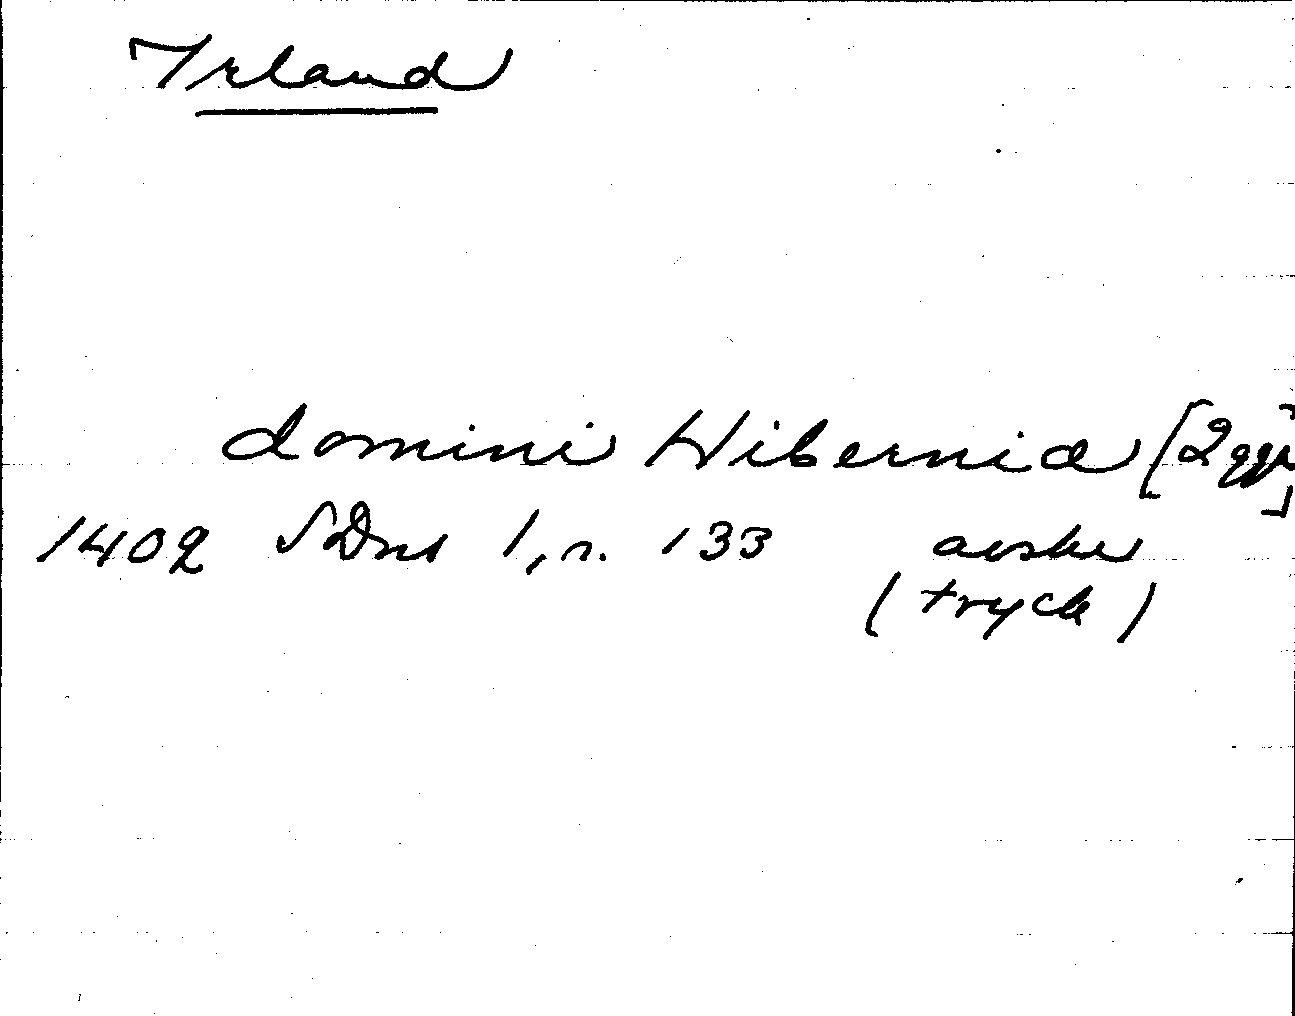 Irland
domini Hibernia [2 ggr]
1402 SDns 1, n. 133 avskr
(tryck)